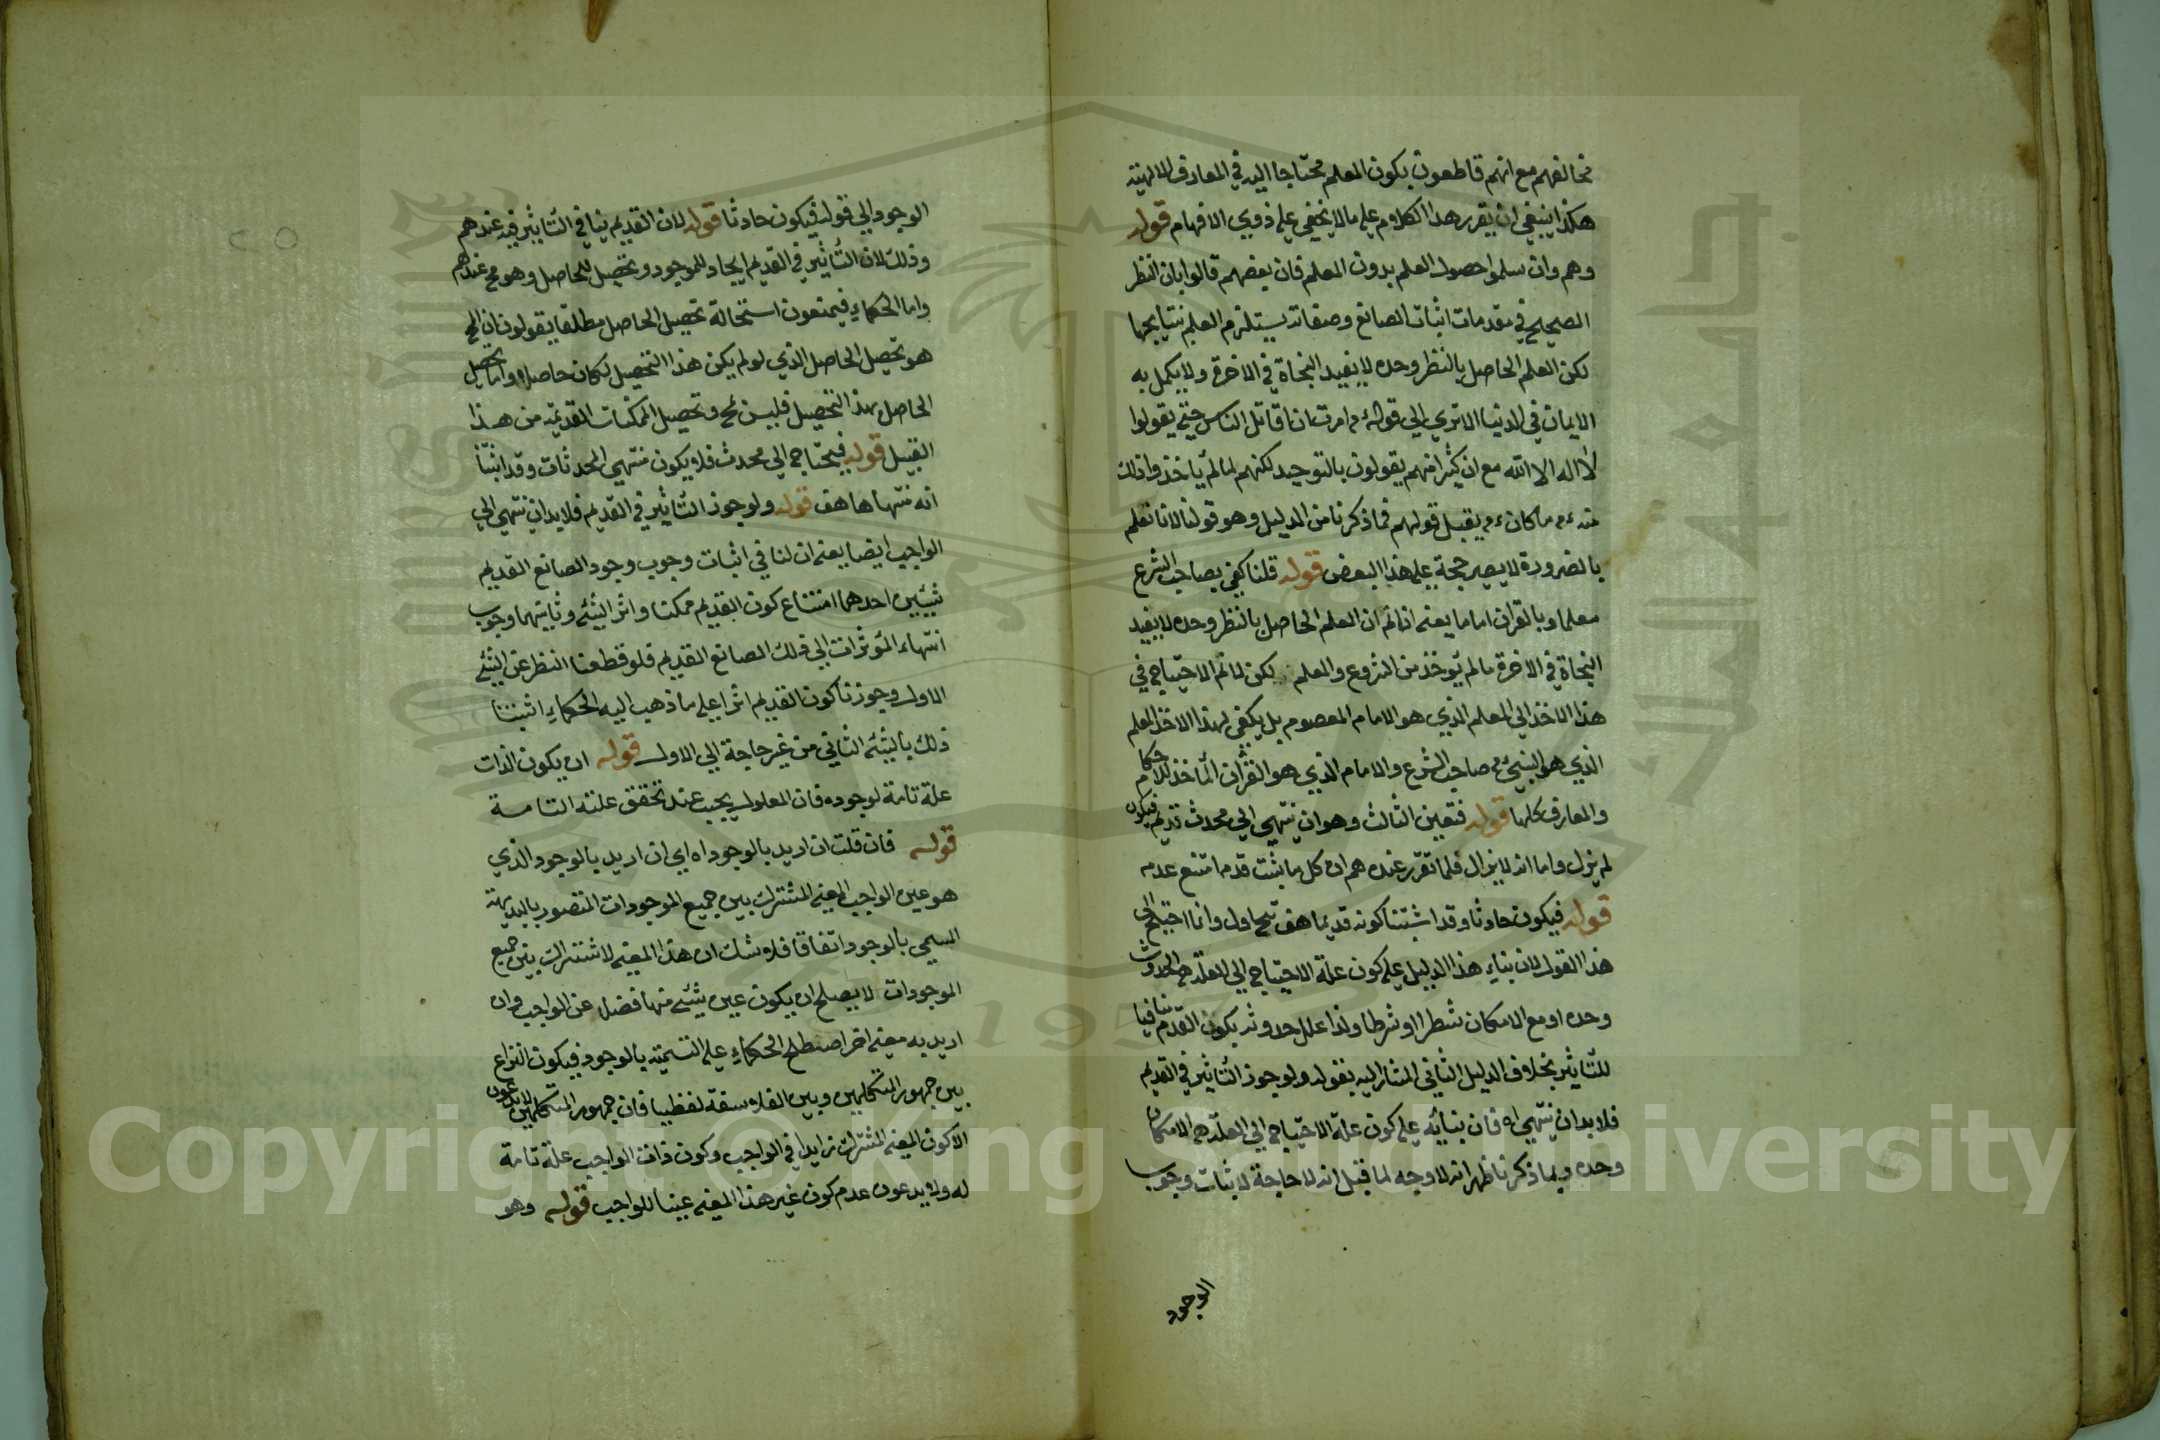 نخالفهم مع انهم قاطعون بكون المعلم محتاجا اليه في المعارف الالهية
هكذا ينبغي ان يقرر هذا الكلام على ما لا يخفى على ذوي الافهام قوله
وهم وان سلموا حصول العلم بدون المعلم فان بعضهم قالوا بان النظر
الصحيح في مقدمات اثبات الصانع وصفاته يستلزم العلم بنتايجها
لكن العلم الحاصل بالنظر وحده لا يفيد النجاة في الاخرة ولا يكمل به
الايمان في الدنيا الا تري الي قوله ءم امرت ان اقاتل الناس حتى يقولوا
لا اله الا الله مع ان كثيرا منهم يقولون بالتوحيد لكنهم لما لم يأخذوا ذلك
منه ءم ما كان ءم يقبل قولهم فما ذكرنا من الدليل وهو قولنا لانا نعلم
بالضرورة لا يصير حجة على هذا البعض قوله قلنا كفى بصاحب الشرع
معلما وبالقران اماما يعنى انا نم ان العلم الحاصل بالنظر وحده لا يفيد
النجاة في الاخرة ما لم يؤخذ من الشرع والمعلم لكن لا نم الاحتياج في
هذا الاخذ الي المعلم الذي هو الامام المعصوم بل يكفي لهذا الاخذ المعلم
الذي هو النبي ءم صاحب الشرع والامام الذي هو القرآن المأخذ للاحكام
والمعارف كلها قوله فتعين الثالث وهو ان ينتهي الي محدث قديم فيكون
لم يزل واما انه لا يزال فلما تقرر عندهم ان كل ما يثبت قدمه امتنع عدمه
قوله فيكون حادثا وقد اثبتنا كونه قديما هف وانما احتيج الى
هذا القول لان بناء هذا الدليل على كون علة الاحتياج الي العلة هي الحدوث
وحده او مع الامكان شطرا او شرطا ولذا علل حدوثه بكون القدم منافيا
للتأثير بخلاف الدليل الثاني المشار اليه بقوله ولو جوز التأثير في القديم
فلا بد ان ينتهي اه فان بنائه على كون علة الاحتياج الي العلة هي الامكان
وحده وبما ذكرنا ظهر انه لا وجه لما قيل انه لا حاجة لاثبات وجوب
الوجود
الوجود الي قوله فيكون حادثا قوله لان القديم ينافي التأثير فيه عندهم
وذلك لان التأثير في القديم ايجاد للموجود وتحصيل للحاصل وهو مح عندهم
واما الحكماء فيمنعون استحالة تحصيل الحاصل مطلقا يقولون ان المح
هو تحصيل الحاصل الذي لو لم يكن هذا التحصيل لكان حاصلا واما تحصيل
الحاصل بهذا التحصيل فليس بمح وتحصيل الممكنات القديمة من هذا
القبيل قوله فيحتاج الي محدث فلا يكون منتهي المحدثات وقد اثبتنا
انه منتهاها هف قوله ولو جوز التأثير في القديم فلا بد ان ينتهي الي
الواجب ايضا يعنى ان لنا في اثبات وجوب وجود الصانع القديم
شيئين احدهما امتناع كون القديم ممكنا واثر الشئ وثانيهما وجوب
انتهاء المؤثرات الي ذلك الصانع القديم فلو قطعنا النظر عن الشئ
الاول وجوزنا كون القديم اثرا على ما ذهب اليه الحكماء اثبتنا
ذلك بالشئ الثاني من غير حاجة الي الاول قوله ان يكون الذات
علة تامة لوجوده فان المعلول يجب عند تحقق علته التامة
قوله فان قلت ان اريد بالوجود اه اي ان اريد بالوجود الذي
هو عين الواجب المعنى المشترك بين جميع الموجودات المتصور بالبديهة
المسمي بالوجود اتفاقا فلا شك ان هذا المعنى لاشتراكه بين جميع
الموجودات لا يصلح ان يكون عين شئ منها فضلا عن الواجب وان
اريد به معنى اخر اصطلح الحكماء على التسمية بالوجود فيكون النزاع
بين جمهور المتكلمين وبين الفلاسفة لفظيا فان جمهور المتكلمين لا يدعون
الا كون المعنى المشترك زايدا في الواجب وكون ذات الواجب علة تامة
له ولا يدعون عدم كون غير هذا المعنى عينا للواجب قوله وهو
Copyright © King Saud University